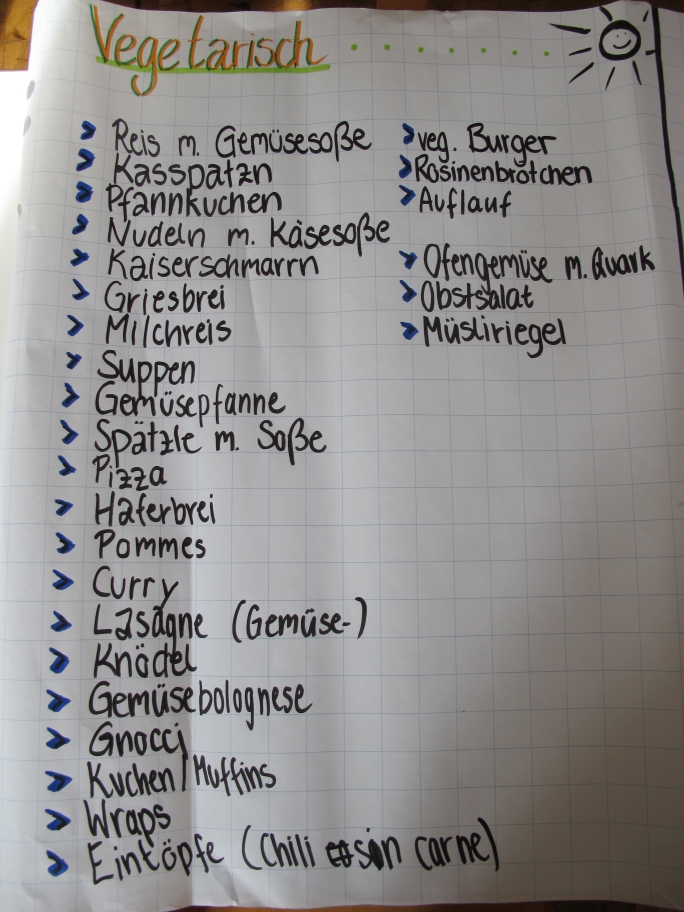 Vegetarisch
Reis m. Gemüsesoße
Kasspatzn
Pfannkuchen
Nudeln m. Käsesoße
Kaiserschmarrn
Griesbrei
Milchreis
Suppen
Gemüsepfanne
Spätzle m. Soße
Pizza
Haferbrei
Pommes
Curry
Lasagne (Gemüse-)
Knödel
Gemüsebolognese
Gnocci
Kuchen/Muffins
Wraps
Eintöpfe (Chili sin carne)
veg. Burger
Rosinenbrötchen
Auflauf
Ofengemüse m. Quark
Obstsalat
Müsliriegel